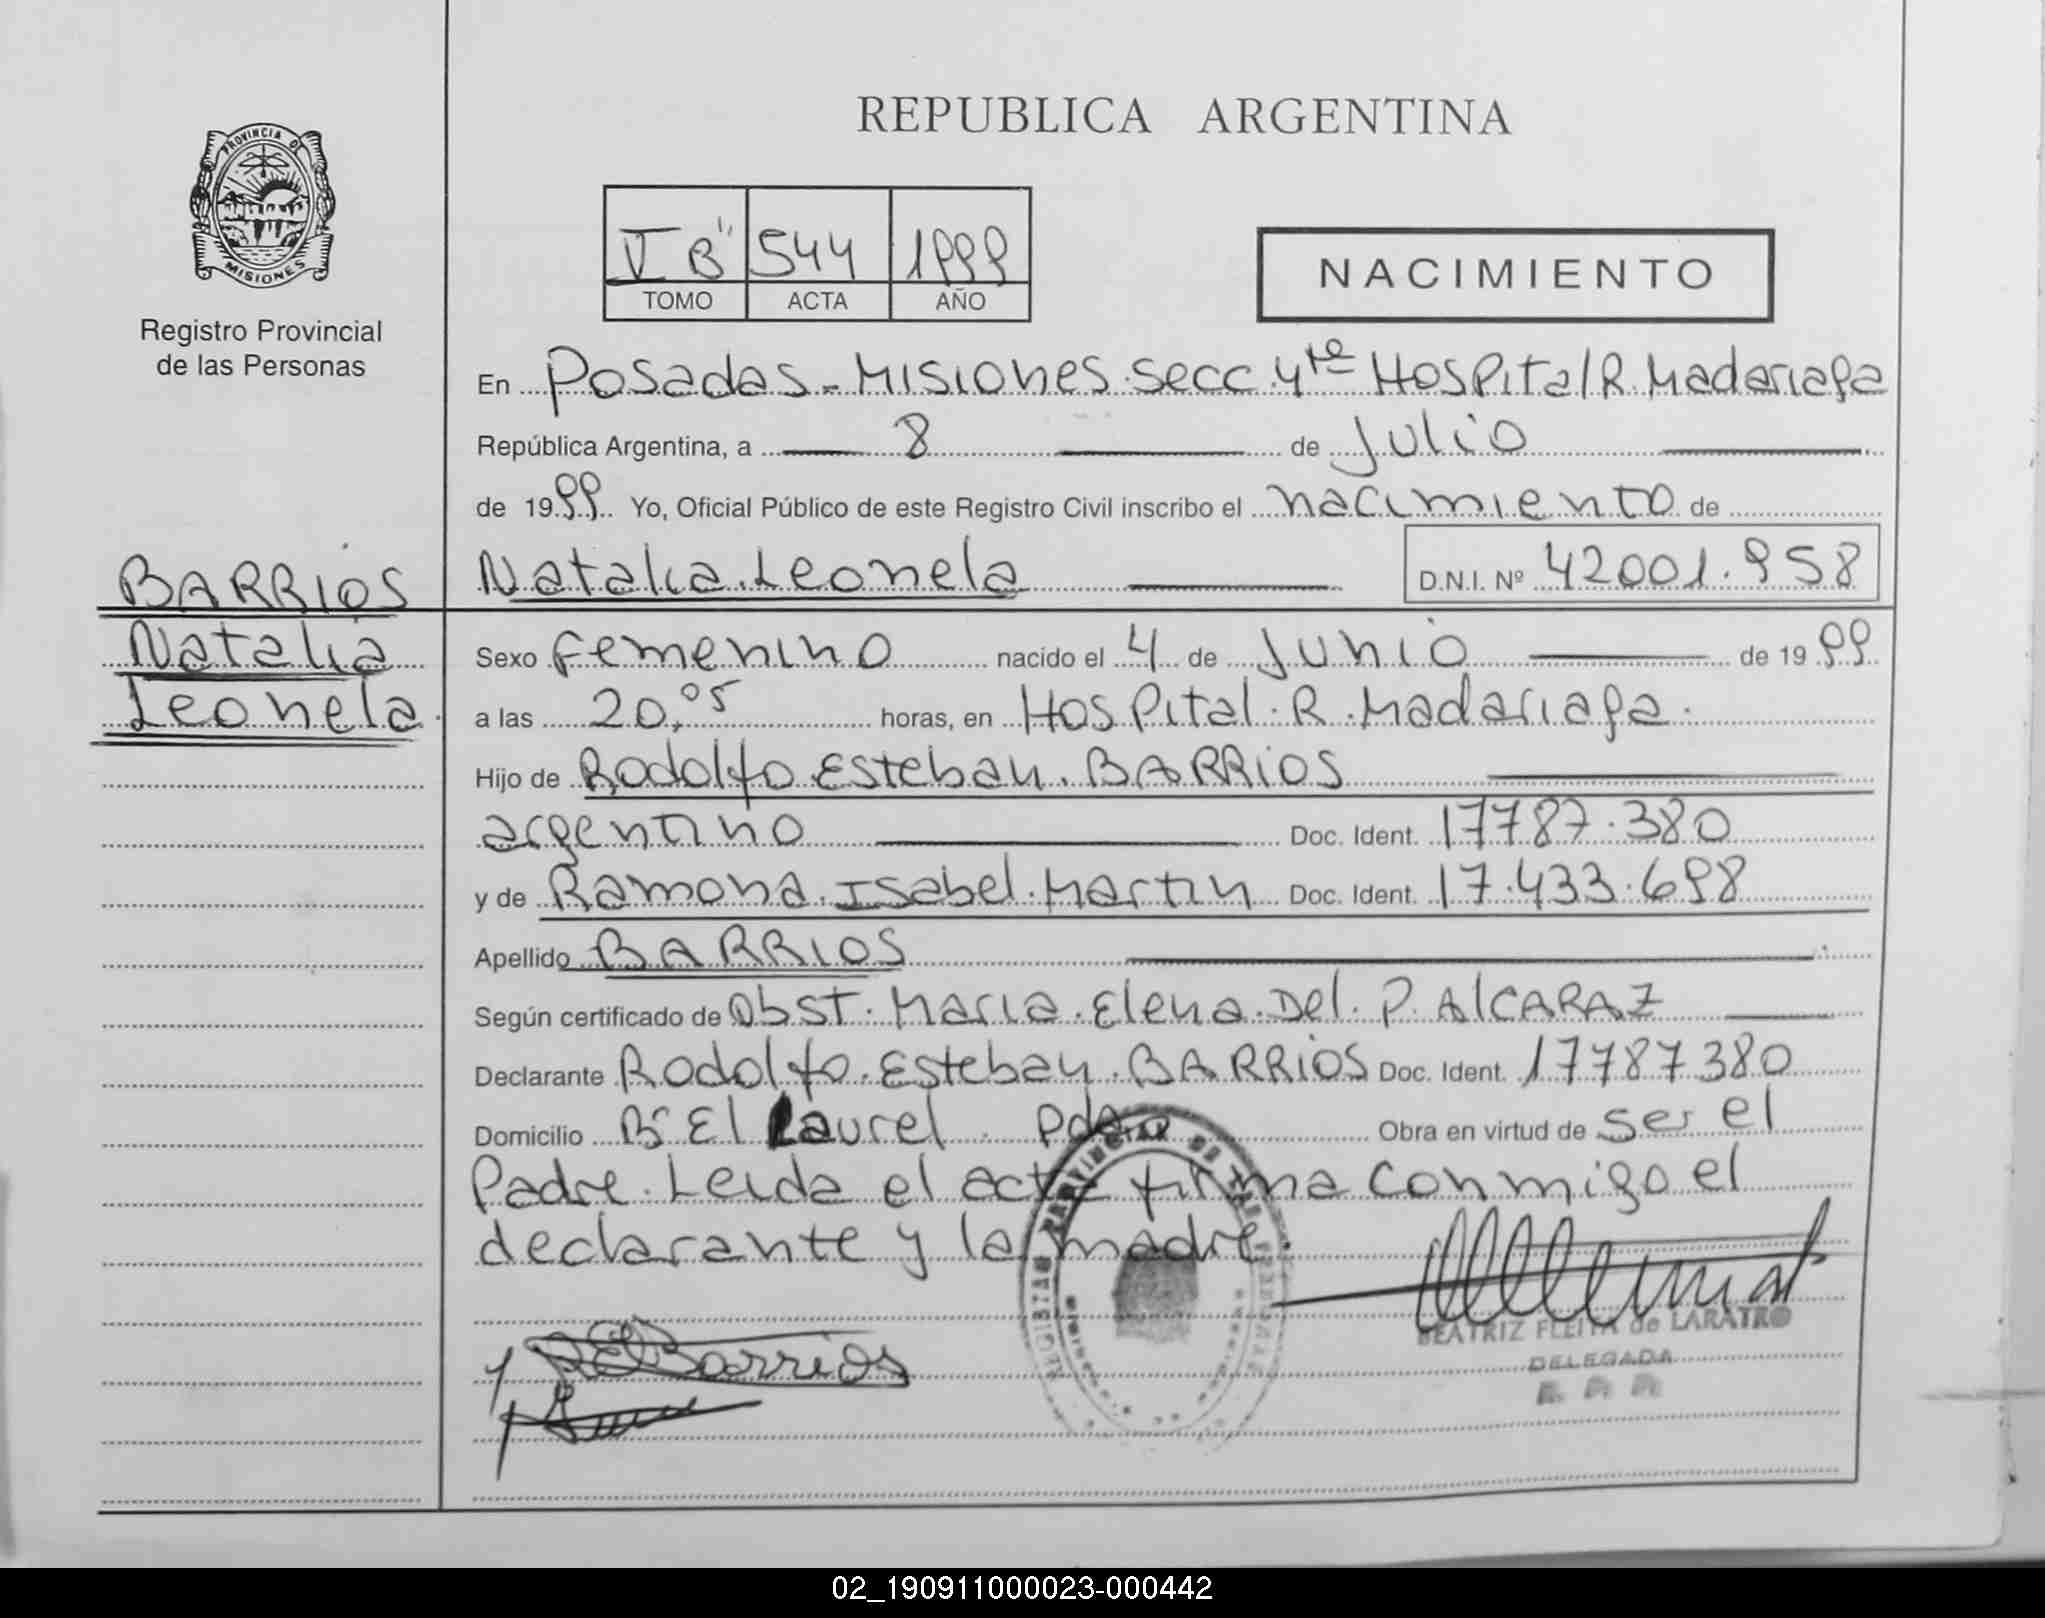 REPUBLICA ARGENTINA
PROVINCIA DE
MISIONES
Registro Provincial
de las Personas
V "B" 544 1999
TOMO ACTA AÑO
NACIMIENTO
En Posadas - Misiones. Secc. 4ta Hospital R. Madariaga
República Argentina, a 8 de Julio
de 1999 Yo, Oficial Público de este Registro Civil inscribo el nacimiento de
BARRIOS
Natalia Leonela
D.N.I. Nº 42001.958
Natalia
Leonela.
Sexo Femenino nacido el 4 de Junio de 1999
a las 20,05 horas, en Hospital. R. Madariaga.
Hijo de Rodolfo Esteban. BARRIOS
argentino Doc. Ident. 17787.380
y de Ramona. Isabel. Martin Doc. Ident. 17.433.698
Apellido BARRIOS
Según certificado de Obst. Maria. Elena. Del. P. AlCARAZ
Declarante Rodolfo. Esteban. BARRIOS Doc. Ident. 17787380
Domicilio Bº El Laurel. Pdas Obra en virtud de ser el
Padre. Leida el acta firma conmigo el
declarante y la madre.
REBarrios
BEATRIZ FLEITA de LARATRO
DELEGADA
02_190911000023-000442